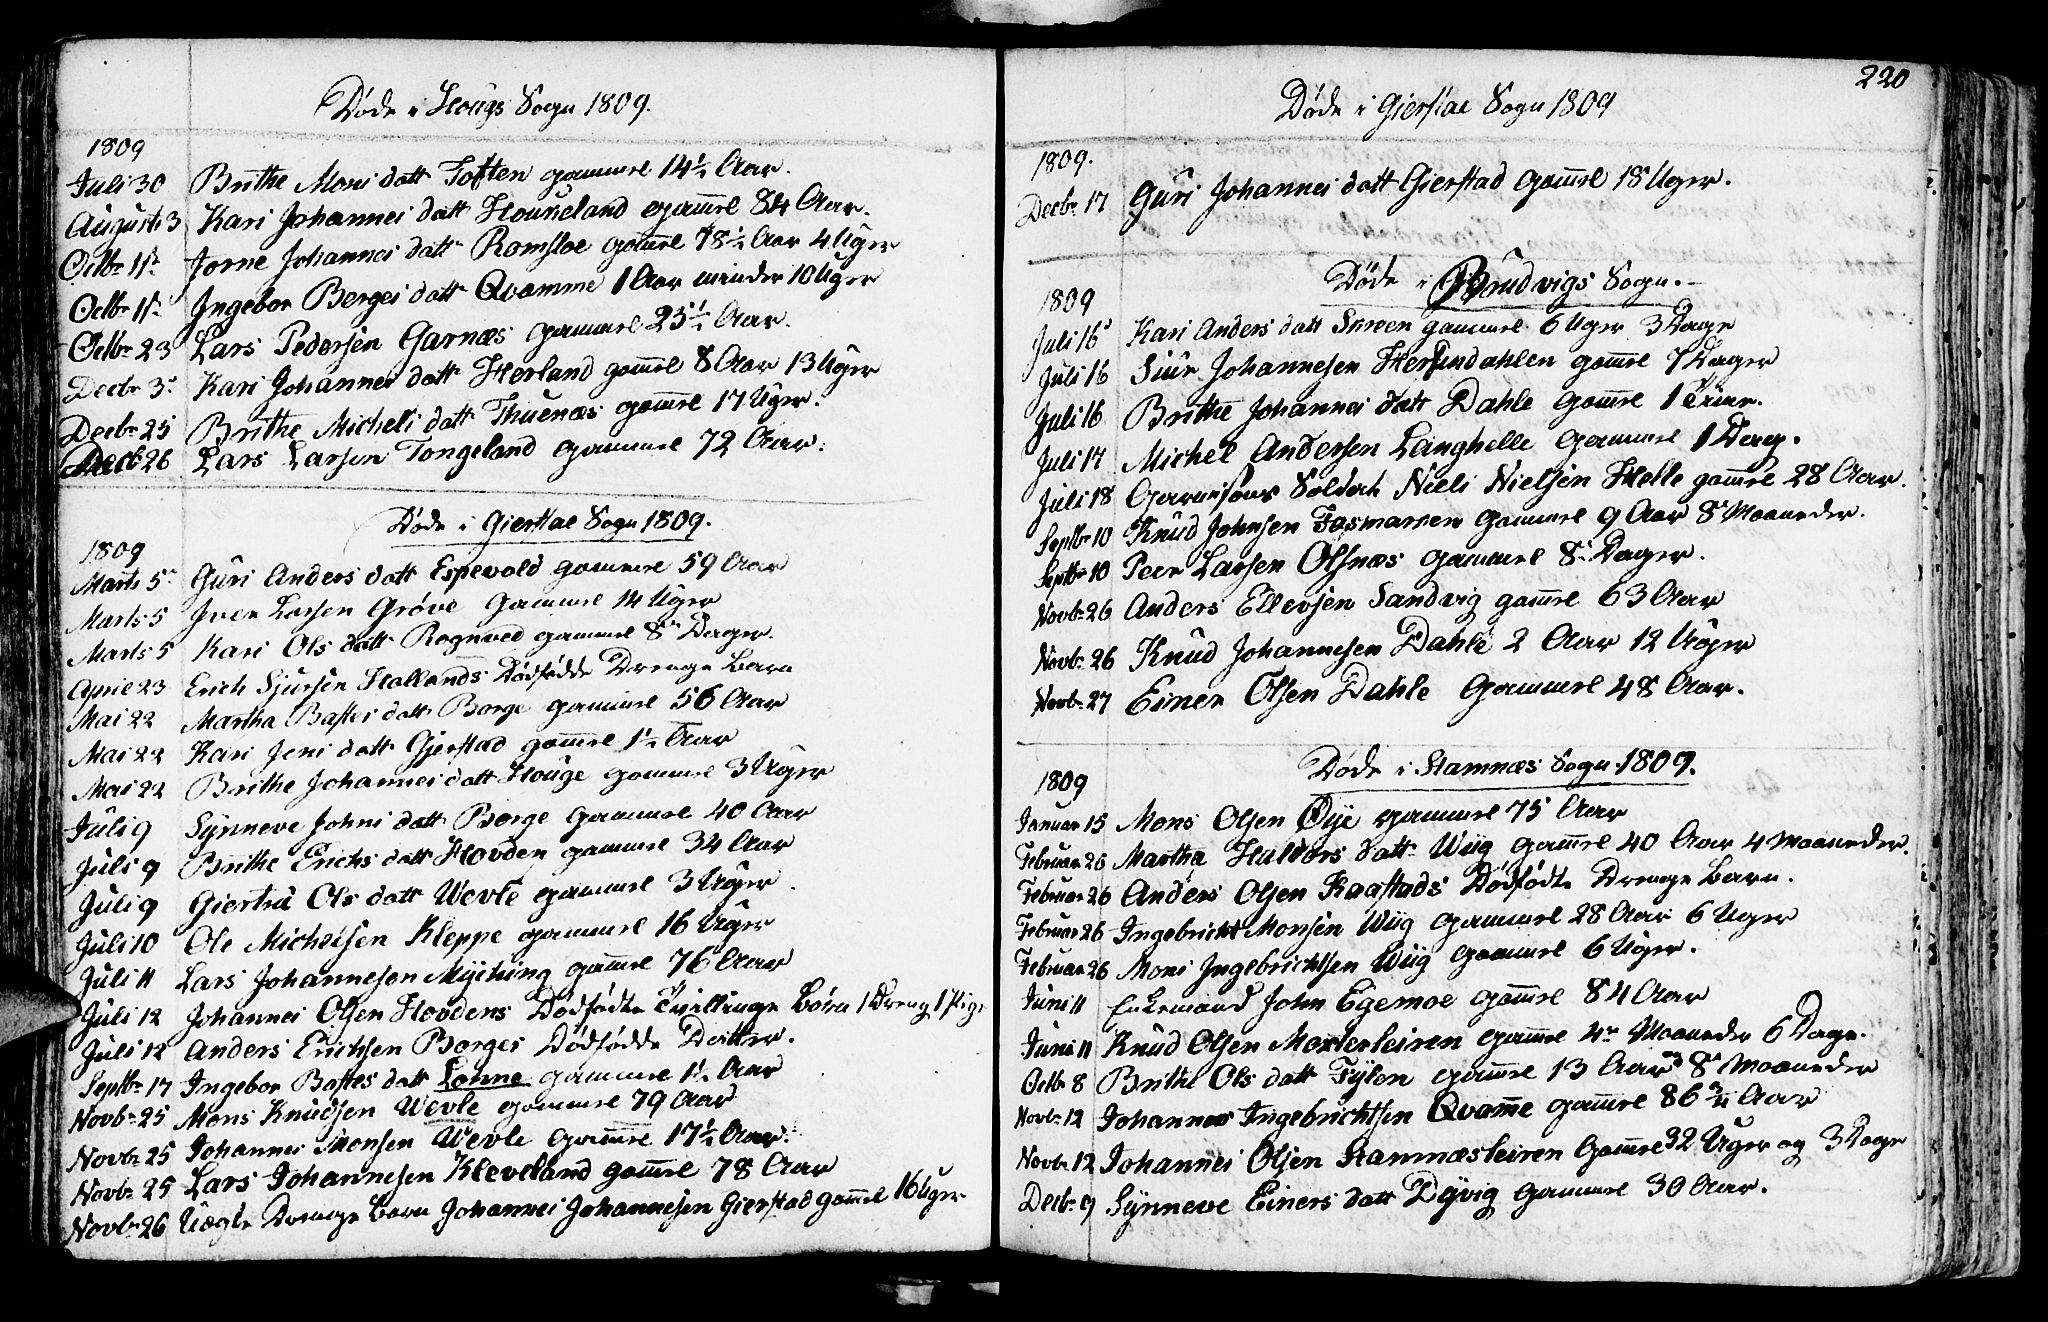 Døde i Hougs Sogn 1809.
1809
Juli 30 Brithe Mons datt Toften gammel 14½ Aar.
Augusti 3 Kari Johannes datt Houkeland gam̄el 84 Aar.
Octbr 15 Jorne Johannes datt Romsloe gam̄el 78½ Aar 4 Uger
Octbr 15 Ingebor Berges datt Qvamme 1 Aar minder 10 Uger
Octbr 23 Lars Pedersen Garnæs gammel 25½ Aar.
Decbr 3 Kari Johannes datt Herland gam̄el 8 Aar 13 Uger
Decbr 25 Brithe Michels datt Thuenæs gam̄el 17 Uger.
Decb 26 Lars Larsen Tongeland gammel 72 Aar.
Døde i Gierstae Sogn 1809.
1809
Marts 5 Guri Anders datt Espevold gammel 59 Aar
Marts 5 Iver Larsen Grøve gammel 14 Uger
Marts 5 Kari Ols datt Rognved gammel 8 Dager.
April 23 Erich Sjursen Hollands Dødfødde Drenge Barn
Mai 22 Martha Bastes datt Borge gammel 56 Aar
Mai 22 Kari Jens datt Gjerstad gam̄el 1½ Aar
Mai 22 Brithe Johannes datt Houge gammel 3 Uger
Juli 9 Synneve Johns datt Borge gammel 40 Aar
Juli 9 Brithe Erichs datt Hovden gammel 34 Aar
Juli 9 Giertrü Ols datt Wevle gammel 3 Uger.
Juli 10 Ole Michelsen Kleppe gammel 16 Uger
Juli 11 Lars Johannesen Myching gam̄el 76 Aar
Juli 12 Johannes Olsen Hovdens Dødfødte Tvillinge Børn 1 Dreng 1 Pige
Juli 12 Anders Erichsen Borges Dødfødde Datter.
Septbr 17 Ingebor Bastes datt Lonne gammel 1½ Aar
Novbr 25 Mons Knudsen Wevle gammel 79 Aar
Novbr 25 Johannes Monsen Wevle gam̄el 17½ Aar.
Novbr 25 Lars Johannesen Kleveland gam̄el 78 Aar
Novbr 26 Uægte Drenge Barn Johannes Johannesen Gierstad gam̄el 16 Uger
220
Døde i Gierstae Sogn 1809
1809.
Decbr 17 Guri Johannes datt Gierstad gam̄el 18 Uger.
Døde i Brudvigs Sogn.
1809
Juli 16 Kari Anders datt gammel 6 Uger 3 Dage
Juli 16 Siur Johannesen Herfindahlen gam̄el 7 Dager
Juli 16 Brithe Johannes datt Dahle gam̄el 1 Time.
Juli 17 Michel Andersen Langhelle gammel 1 Dag.
Juli 18 Garnisons Soldat Niels Nielsen Helle gam̄el 28 Aar.
Septbr 10 Knud Johnsen Fasmarken gammel 9 Aar 8 Maaneder.
Septbr 10 Peer Larsen Olsnæs gammel 8 Dager.
Novbr 26 Anders Ellevsen Sandvig gam̄el 63 Aar
Novbr 26 Knud Johannesen Dahle 2 Aar 12 Uger
Novbr 27 Einer Olsen Dahle gammel 48 Aar.
Døde i Stamnæs Sogn 1809.
1809
Januar 15 Mons Olsen Øye gammel 75 Aar
Februar 26 Martha Haldors datt Wiig gam̄el 40 Aar 4 Maaneder.
Februar 26 Anders Olsen Raastads Dødfødte Drenge Barn.
Februar 26 Ingebricht Monsen Wiig gammel 28 Aar 6 Uger
Februar 26 Mons Ingebrichtsen Wiig gammel 6 Uger.
Juni 11 Enkemand John Egemoe gam̄el 84 Aar
Juni 11 Knud Olsen Mosterleiren gam̄el 4 Maaneder 6 Dage.
Octbr 8 Brithe Ols datt Fylen gam̄el 13 Aar 8 Maaneder
Novbr 12 Johannes Ingebrichtsen Qvam̄e gam̄el 86 Aar
Novbr 12 Johannes Olsen Stamnæsleiren gammel 32 Uger og 3 Dage
Decbr 9 Synneve Einers datt Dyvig gammel 30 Aar.